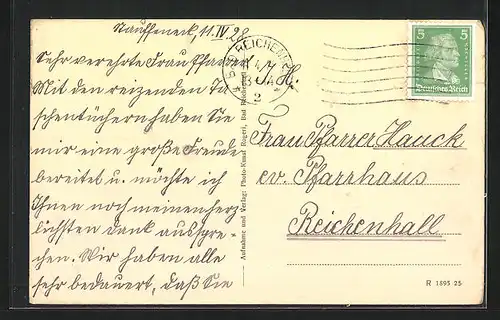 Stauffeneck, 11. IV. 28
Sehr verehrte Frau Pfarrer!
Mit den reizenden Ta-
schentüchern haben Sie
mir eine große Freude
bereitet u. möchte ich
Ihnen noch meinen herz-
lichsten Dank ausspre-
chen. Wir haben alle
sehr bedauert, daß Sie
Aufnahme und Verlag: Photo-Kunst Rogert, Bad Reichenhall
BAD REICHENHALL
2
J. H.
Frau Pfarrer Hauck
ev. Pfarrhaus
Reichenhall
5 5
Deutsches Reich
R 1895 25